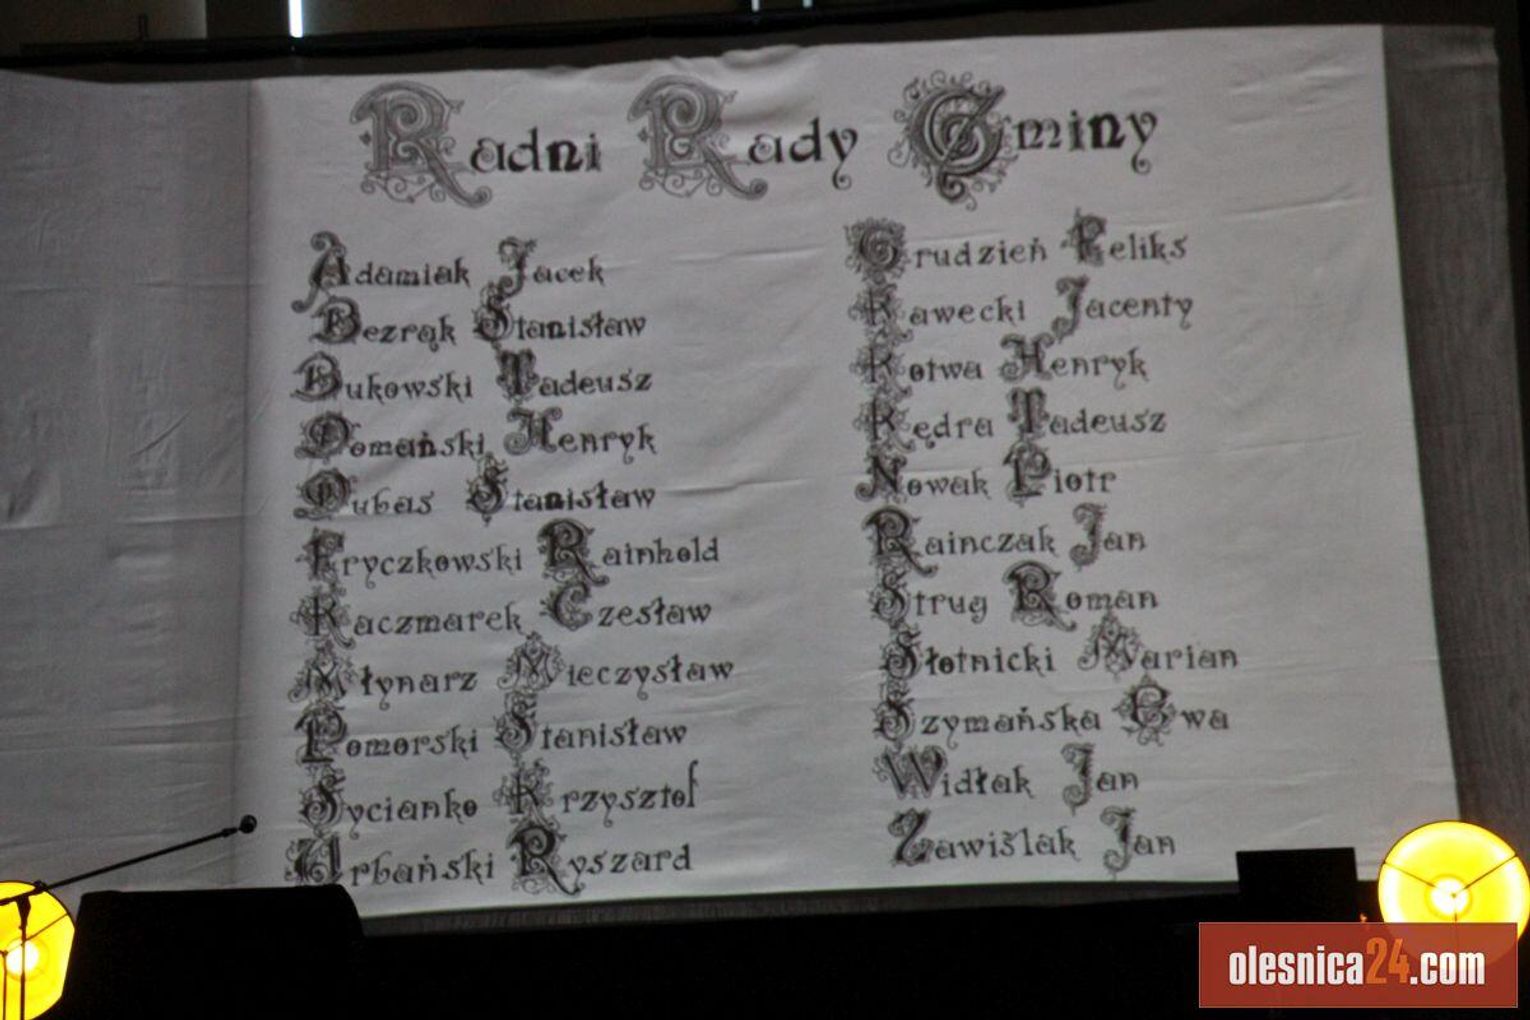 Radni Rady Gminy
Adamiak Jacek
Bezrąk Stanisław
Bukowski Tadeusz
Domański Henryk
Dubas Stanisław
Fryczkowski Rainhold
Kaczmarek Czesław
Młynarz Mieczysław
Pomorski Stanisław
Sycianko Krzysztof
Urbański Ryszard
Grudzień Feliks
Kawecki Jacenty
Kotwa Henryk
Kędra Tadeusz
Nowak Piotr
Rainczak Jan
Strug Roman
Słotnicki Marian
Szymańska Ewa
Widłak Jan
Zawiślak Jan
olesnica24.com